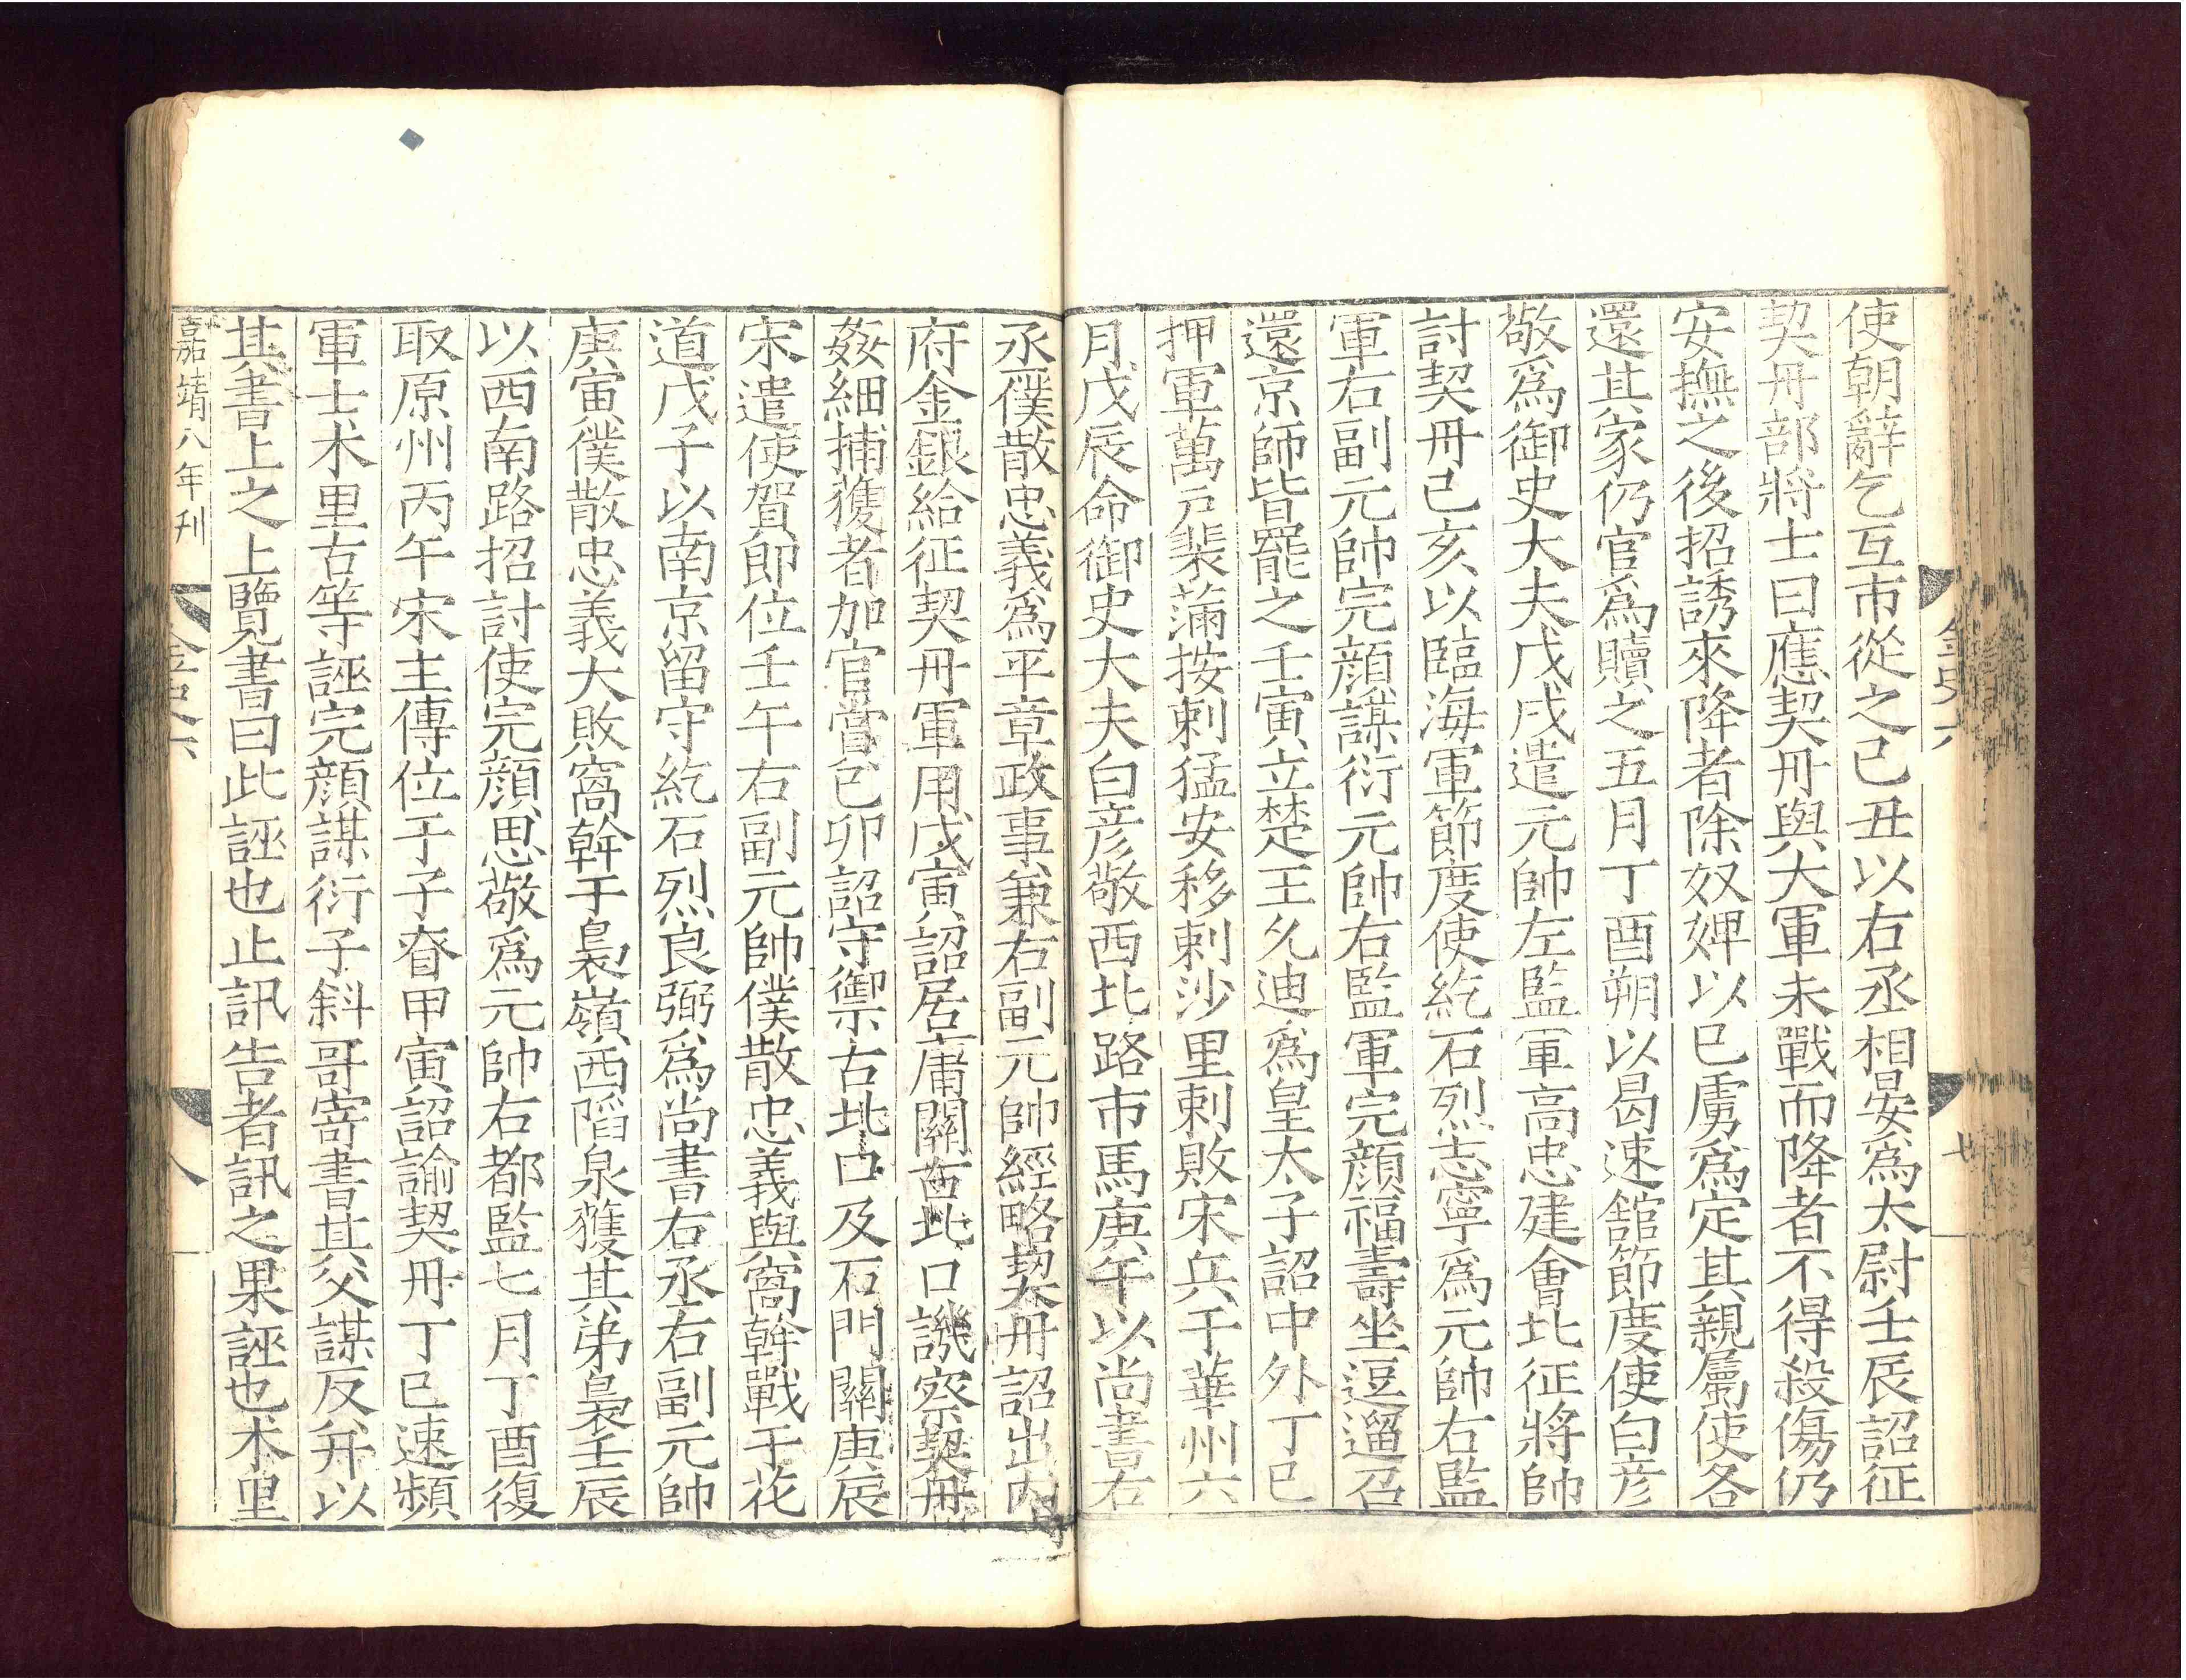 金史六
七
使朝辭乞互市從之己丑以右丞相晏爲太尉壬辰詔征
契丹部將士曰應契丹與大軍未戰而降者不得殺傷仍
安撫之後招誘來降者除奴婢以已虜爲定其親屬使各
還其家仍官爲贖之五月丁酉朔以曷速館節度使白彦
敬爲御史大夫戊戌遣元帥左監軍高忠建會北征將帥
討契丹己亥以臨海軍節度使紇石烈志寧爲元帥右監
軍右副元帥完顔謀衍元帥右監軍完顔福壽坐逗遛召
還京師皆罷之壬寅立楚王允迪爲皇太子詔中外丁巳
押軍萬戸裴滿按剌猛安移剌沙里剌敗宋兵于華州六
月戊辰命御史大夫白彦敬西北路市馬庚午以尚書右
丞僕散忠義爲平章政事兼右副元帥經略契丹詔出内
府金銀給征契丹軍用戊寅詔居庸關古北口譏察契丹
姦細捕獲者加官賞己卯詔守禦古北口及石門關庚辰
宋遣使賀即位壬午右副元帥僕散忠義與窩斡戰于花
道戊子以南京留守紇石烈良弼爲尚書右丞右副元帥
庚寅僕散忠義大敗窩斡于裊嶺西陷泉獲其弟裊壬辰
以西南路招討使完顔思敬爲元帥右都監七月丁酉復
取原州丙午宋主傳位于子眘甲寅詔諭契丹丁巳速頻
軍士术里古等誣完顔謀衍子斜哥寄書其父謀反并以
其書上之上覽書曰此誣也止訊告者訊之果誣也术里
嘉靖八年刊
金史六
八